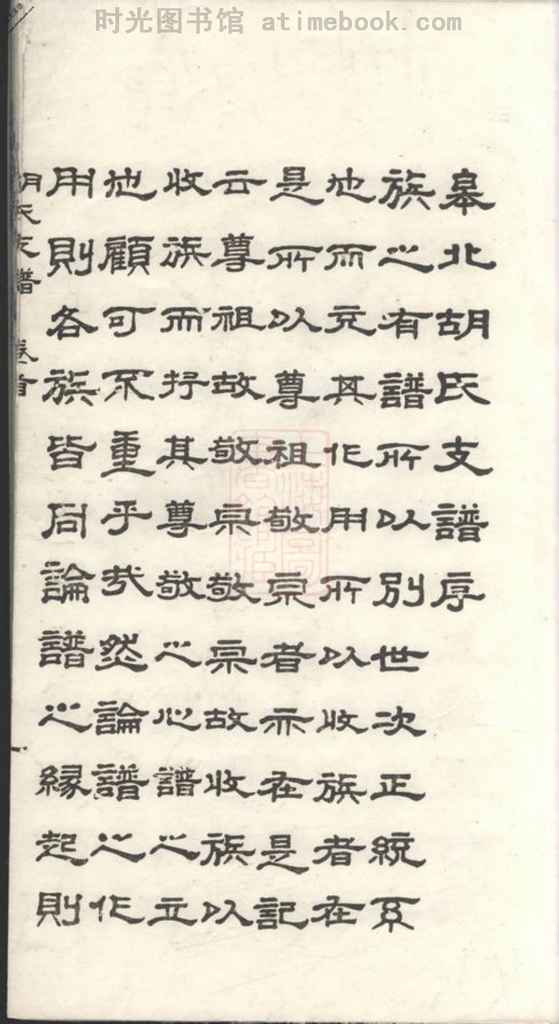 时光图书馆 atimebook.com
皋北胡氏支譜序
族之有譜所以別世次正統系
也而充其作用所以收族者在
是所以尊祖敬宗者亦在是記
云尊祖故敬宗敬宗故收族以
收族而抒其尊敬之心譜之立
也顧可不重乎哉然論譜之作
用則各族皆同論譜之緣起則
胡氏支譜 卷首